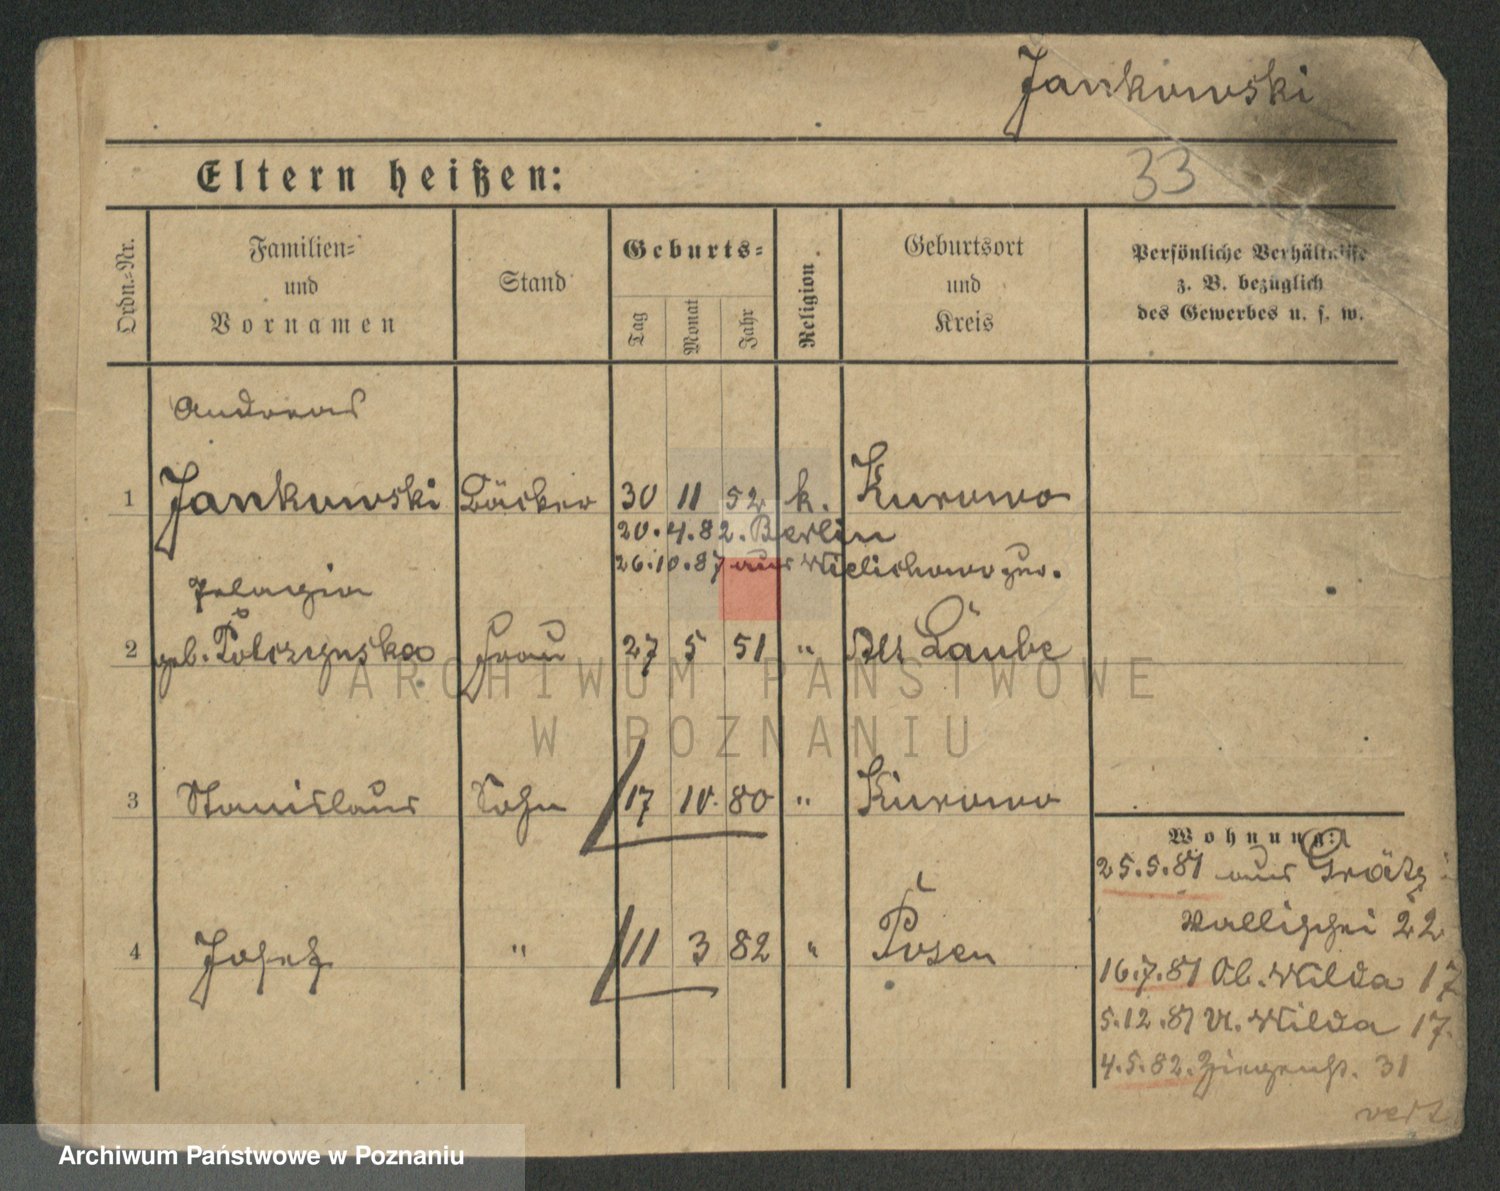 Jankowski
Eltern heißen:
33
Ordn.-Nr.
Familien-
und
Vornamen
Stand
Geburts-
Tag
Monat
Jahr
Religion.
Geburtsort
und
Kreis
Persönliche Verhältnisse
z. B. bezüglich
des Gewerbes u. s. w.
Andreas
1 Jankowski Bäcker 30 11 52 k. Kurowo
20.4.82. Berlin
26.10.87 aus Wielichowo zur.
Pelagia
2 geb. Frau 27 5 51 " Alt Laube
ARCHIWUM PAŃSTWOWE
W POZNANIU
3 Stanislaus Sohn 17 10. 80 " Kurowo
Wohnung:
25.5.81 aus Grätz
Wallischei 22
4 Josef " 11 3 82 " Posen
16.7.81 Ob. Wilda 17
5.12.81 U. Wilda 17.
4.5.82. Ziegenstr. 31
vert
Archiwum Państwowe w Poznaniu